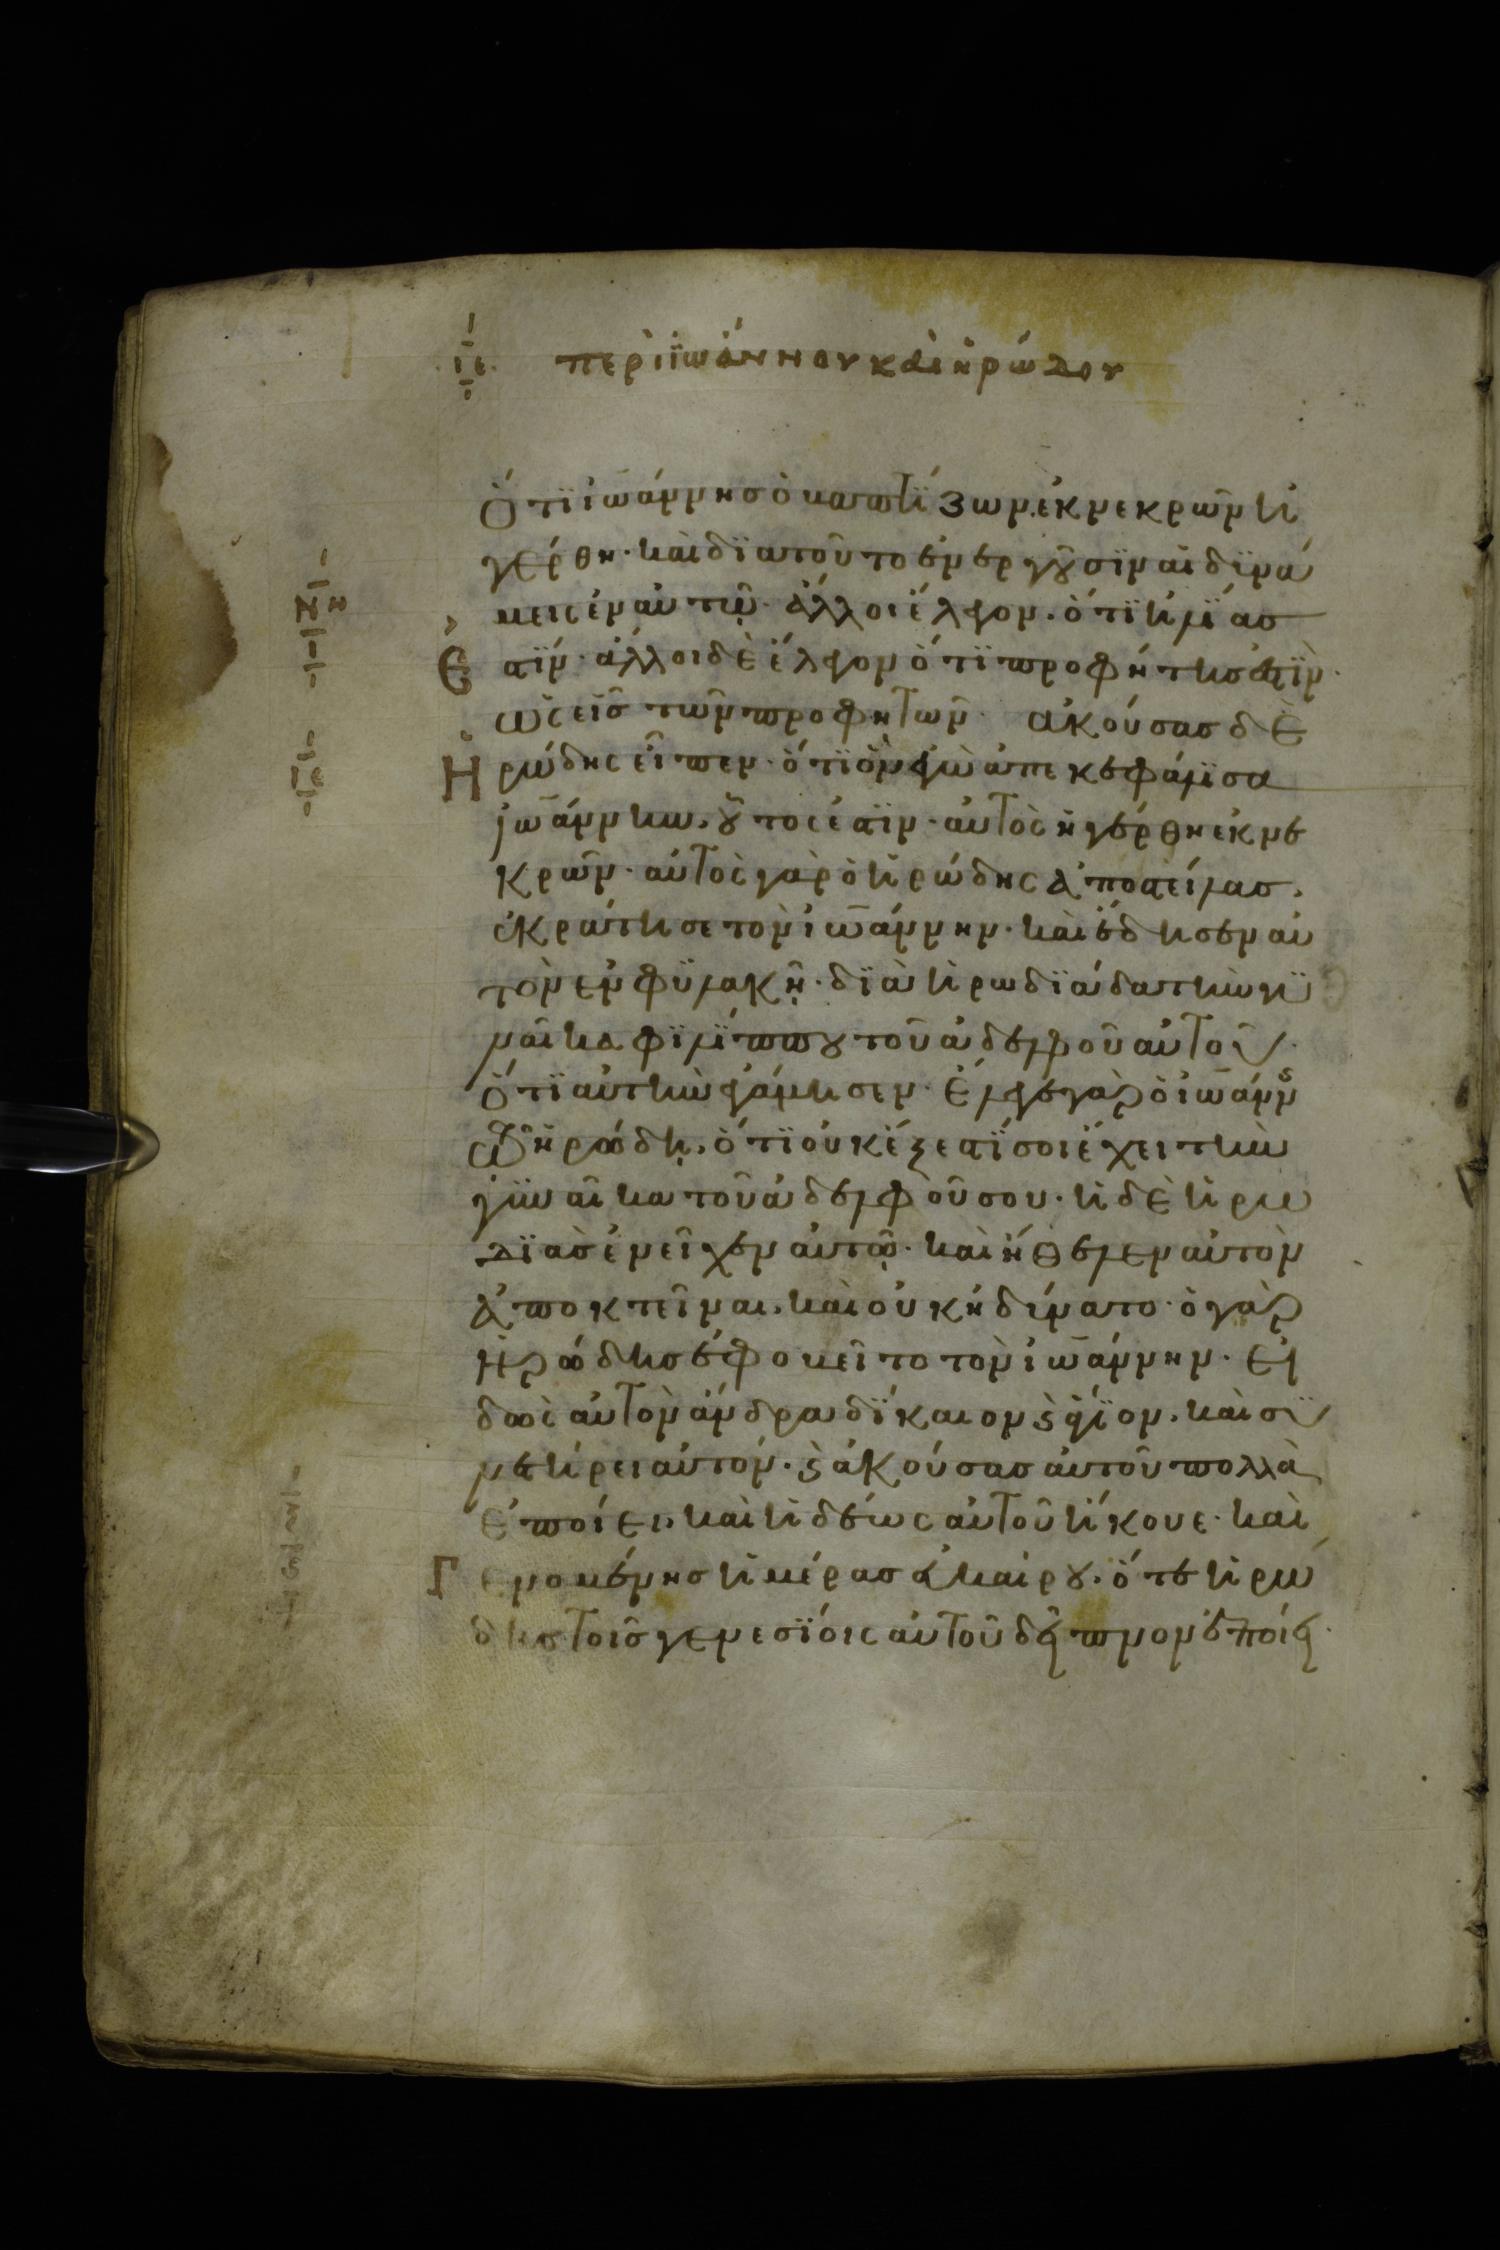 ιε περὶ ἰωάννου καὶ ἡρώδου
Ὅτι ἰωάννησ ὁ βαπτίζων ἐκ νεκρῶν ἠ
γέρθη· καὶ διατοῦτο ἐνεργοῦσϊν αἱ δϋνά
μεις ἐν αὐτῷ· ἄλλοι ἔλεγον· ὅτϊ ἠλΐασ
Ε στΐν· ἄλλοι δὲ ἔλεγον ὅτϊ προφήτησ ἐστῒν·
ὡς εἷσ τῶν προφητῶν· ἀκούσασ δὲ
Ἡ ρώδης εἶπεν· ὅτϊ ὃν ἐγὼ ἀπεκεφάλϊσα
ἰωάννην, οὗτος ἐστϊν· αὐτὸς ἠγέρθη ἐκ νε
κρῶν· αὐτὸς γὰρ ὁ ἡρώδης ἀποστείλασ,
ἐκράτησε τὸν ἰωάννην· καὶ ἔδησεν αὐ
τὸν ἐν φϋλακῇ· δϊὰ ἡρωδϊάδα τὴν γϋ
ναῖκα φϊλΐππου τοῦ ἀδελφοῦ αὐτοῦ·
Ὅτϊ αὐτὴν ἐγάμησεν· ἔλεγε γὰρ ὁ ἰωάννης
τῷ ἡρώδῃ, ὅτϊ οὐκ ἔξεστΐ σοι ἔχειν τὴν
γϋναῖκα τοῦ ἀδελφοῦ σου· ἡ δὲ ἡρω
δϊὰσ ἐνεῖχεν αὐτῷ· καὶ ἤθελεν αὐτὸν
ἀποκτεῖναι, καὶ οὐκ ἠδύνατο· ὁ γὰρ
ἡρώδησ ἐφοβεῖτο τὸν ἰωάννην· εἰ
δὼς αὐτὸν ἄνδρα δΐκαιον καὶ ἅγϊον, καὶ σϋ
νετήρει αὐτόν· καὶ ἀκούσασ αὐτοῦ πολλὰ
ἐποίει, καὶ ἡδέως αὐτοῦ ἤκουε· καὶ
Γ ενομένησ ἡμέρασ εὐκαίρου, ὅτε ἡρώ
δησ τοῖσ γενεσΐοις αὐτοῦ δεῖπνον ἐποίει·